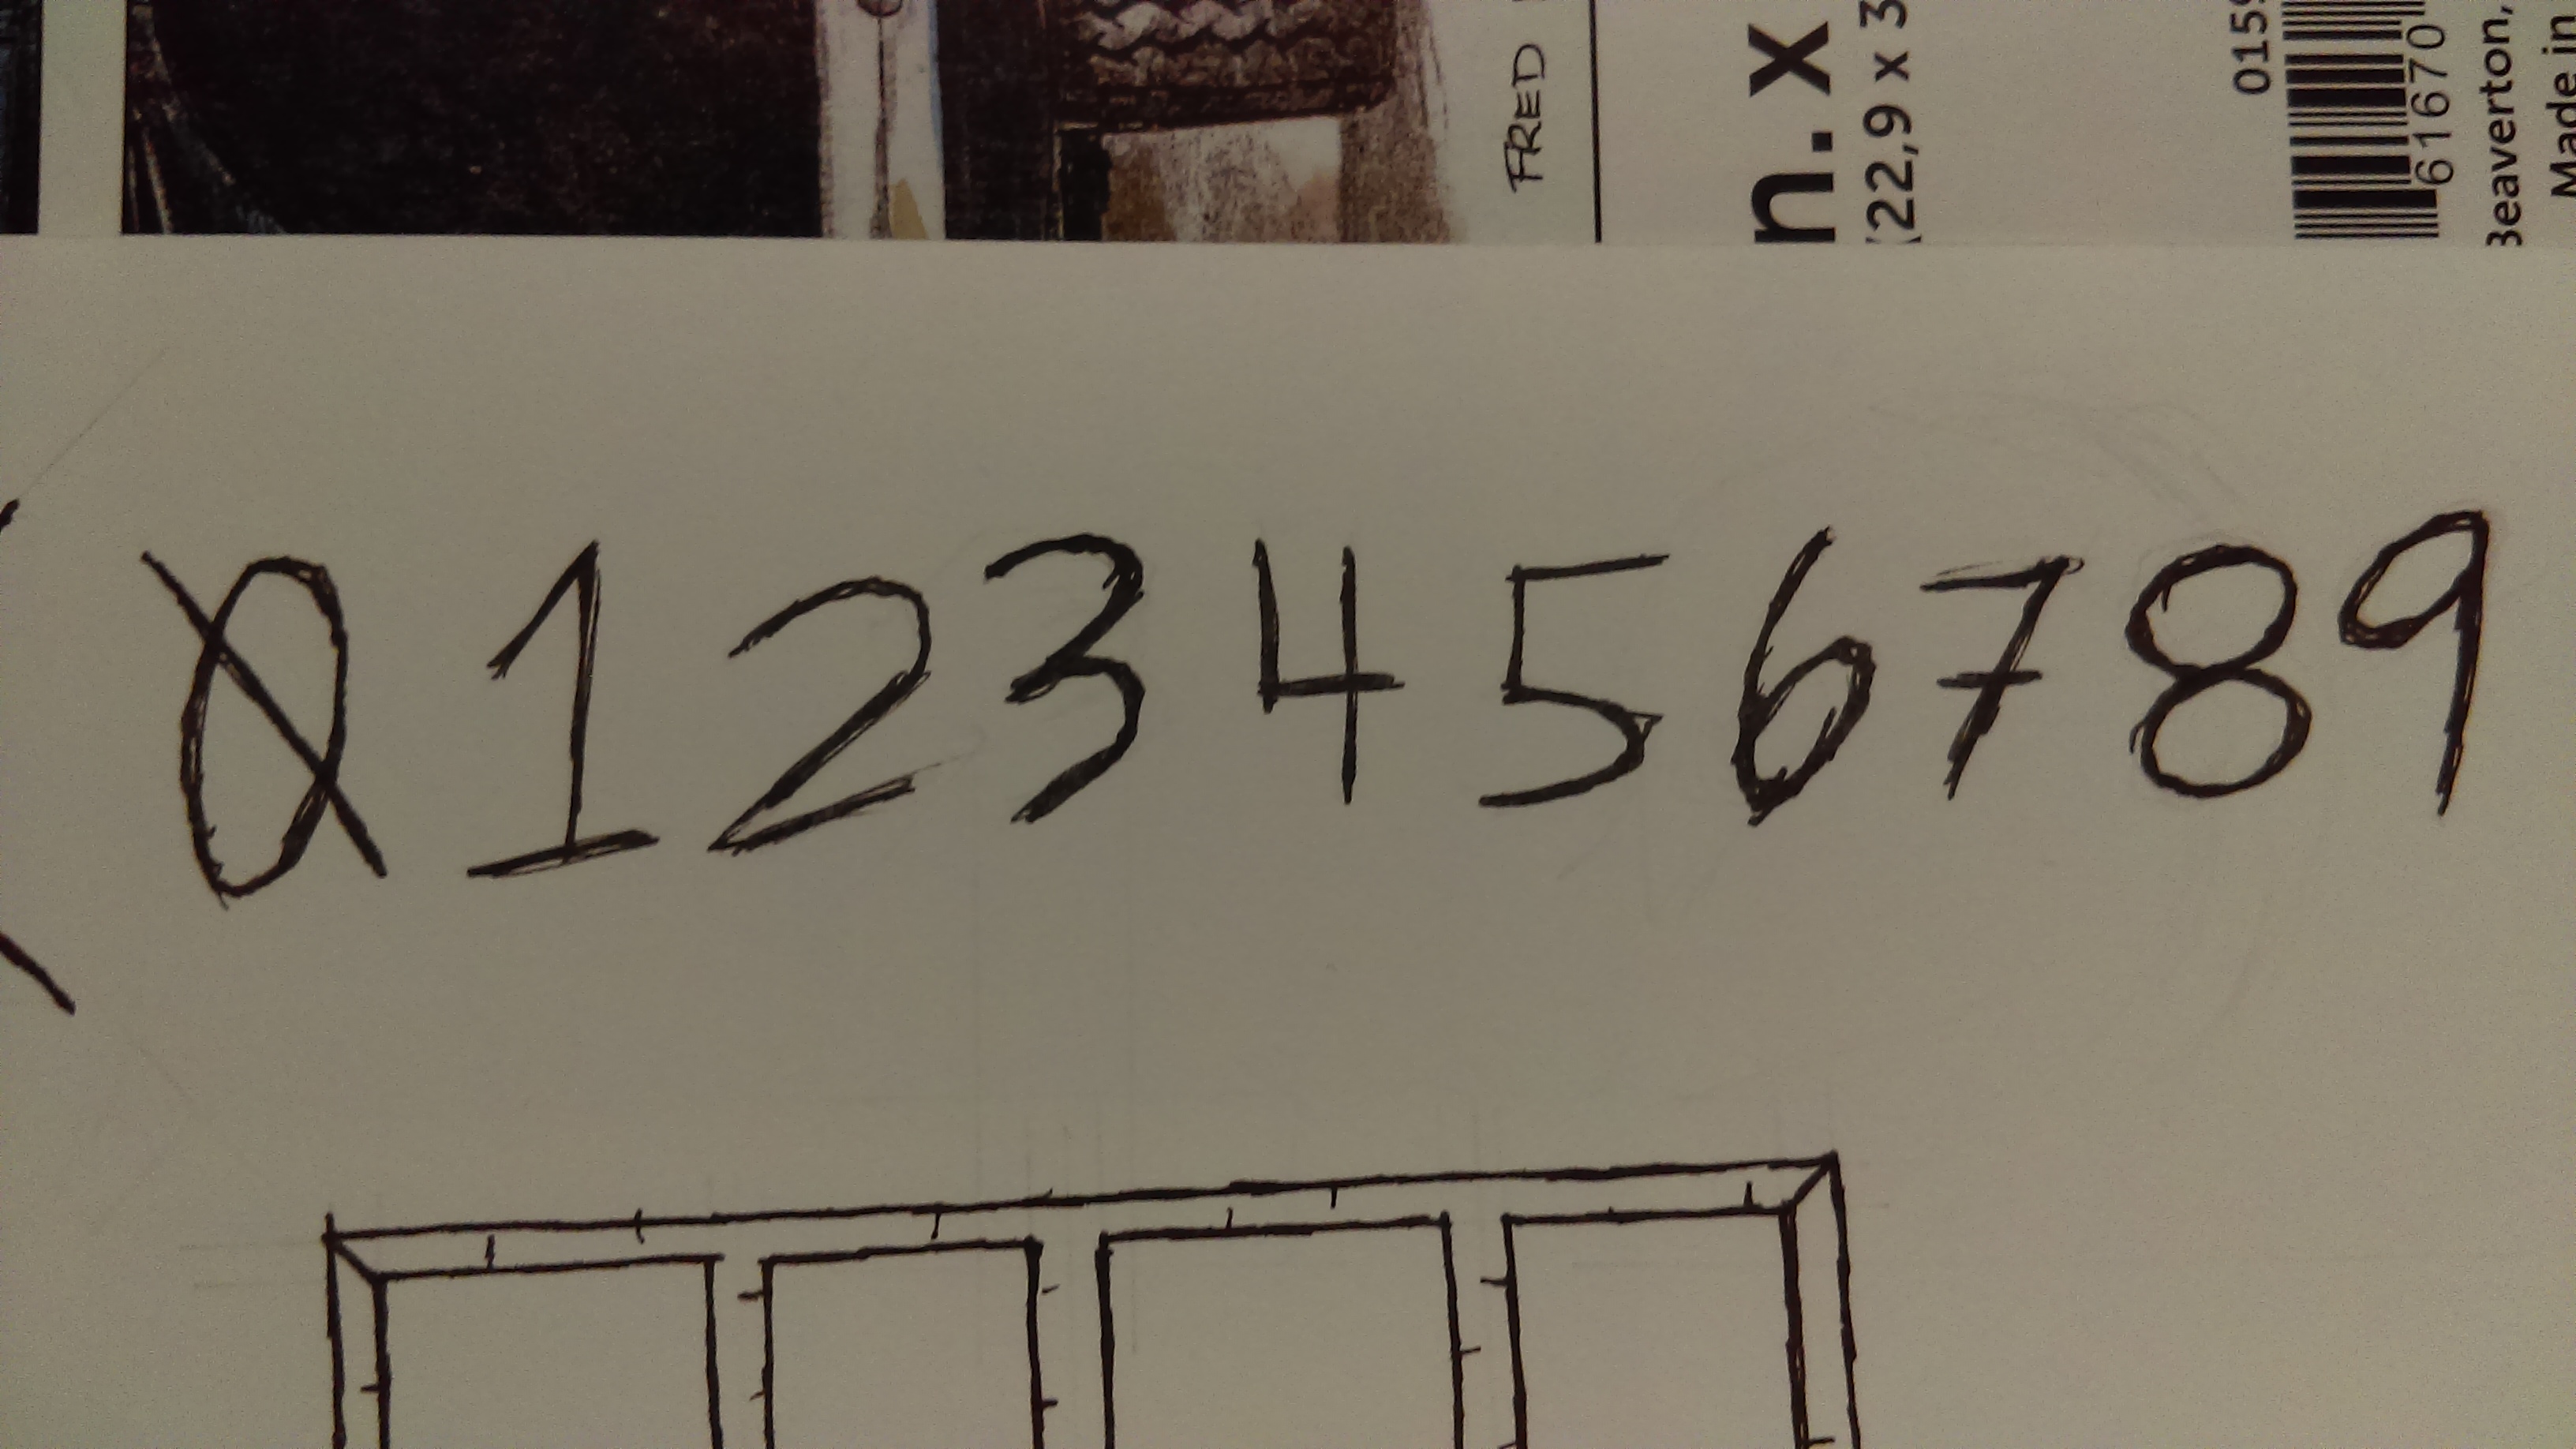 FRED
n. x
(22,9 x 3
0159
61670
Beaverton,
Made in
0 1 2 3 4 5 6 7 8 9